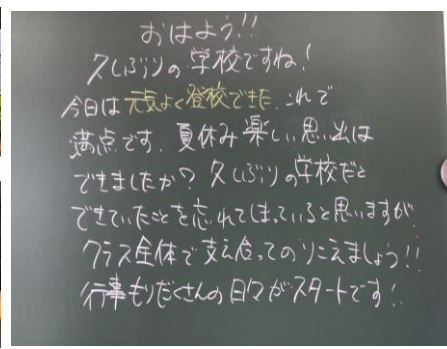 おはよう!!
久しぶりの学校ですね!
今日は元気よく登校できた.これで
満点です.夏休み楽しい思い出は
できましたか?久しぶりの学校だと
できていたことを忘れてしまっていると思いますが
クラス全体で支え合ってのりこえましょう!!
行事もりだくさんの日々がスタートです!